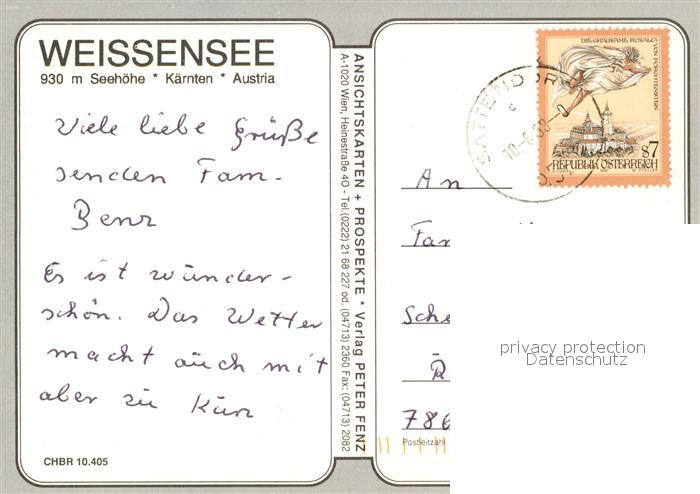 WEISSENSEE
930 m Seehöhe * Kärnten * Austria
Viele liebe Grüße
senden Fam.
Benz
Es ist wunder-
schön. Das Wetter
macht auch mit
aber zu kurz
CHBR 10.405
ANSICHTSKARTEN + PROSPEKTE * Verlag PETER FENZ
A-1020 Wien, Heinestraße 40 - Tel.(0222) 21 68 227 od. (04713) 2360 Fax: (04713) 2082
DIE GRAUSAME ROSALIA VON FORCHTENSTEIN
S7
REPUBLIK ÖSTERREICH
SATTENDORF
An
Fam
Sche
786
Postleitzahl
privacy protection
Datenschutz